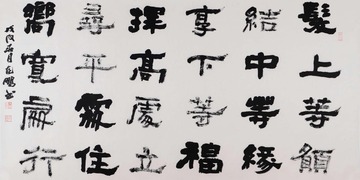 發上等願
結中等緣
享下等福
擇高處立
尋平處住
嚮寬處行
戊戌